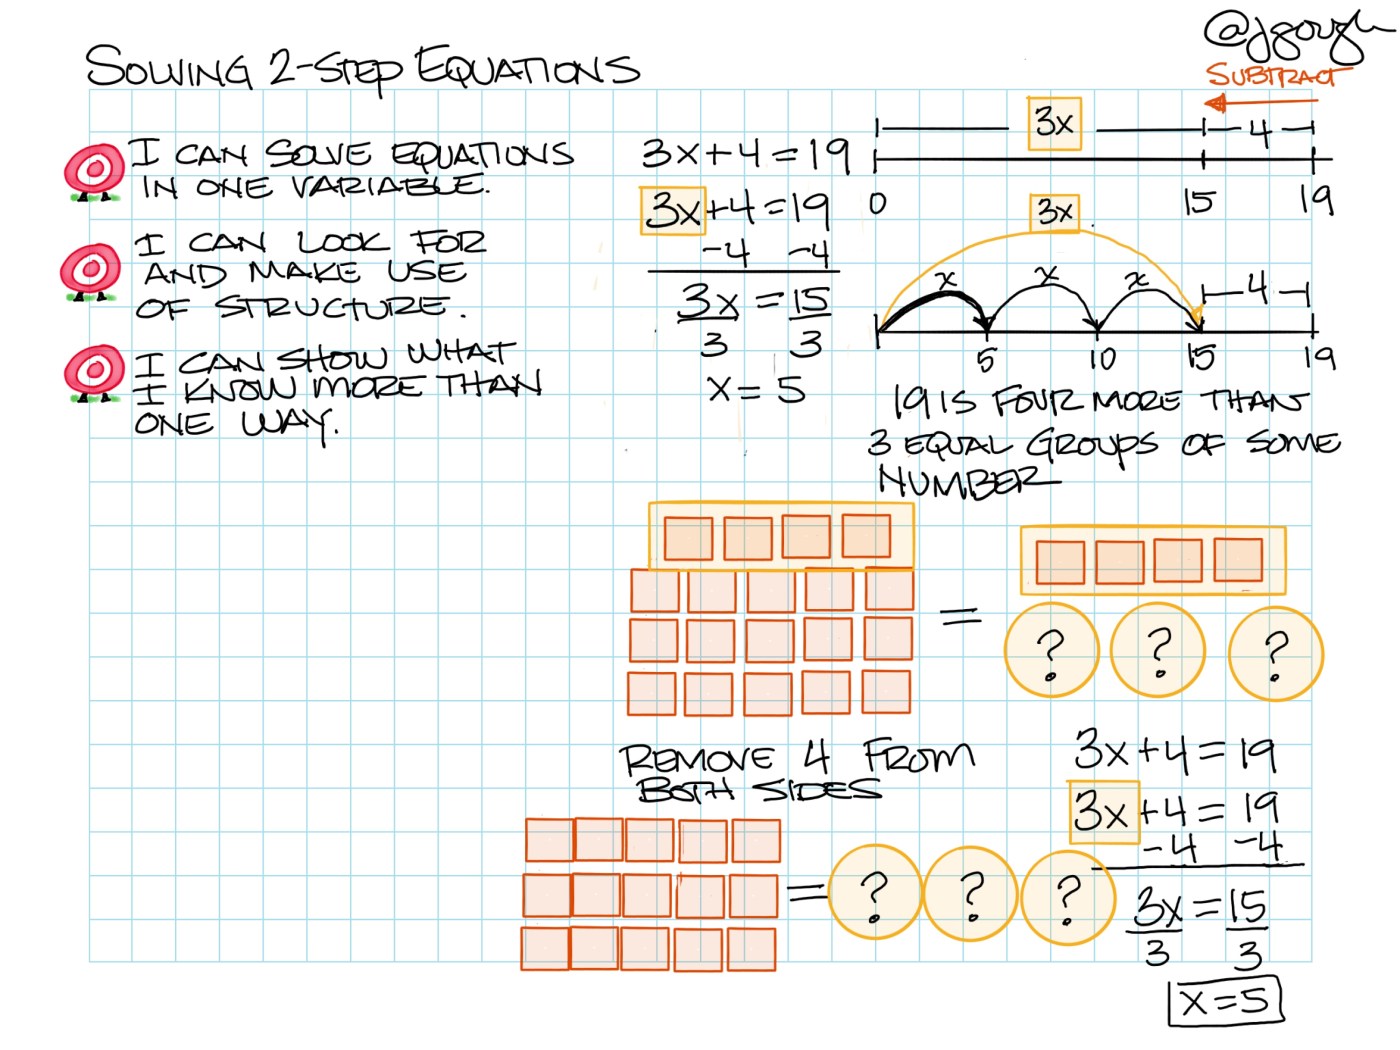 @jgough
SOLVING 2-STEP EQUATIONS
SUBTRACT
I CAN SOLVE EQUATIONS
IN ONE VARIABLE.
I CAN LOOK FOR
AND MAKE USE
OF STRUCTURE.
I CAN SHOW WHAT
I KNOW MORE THAN
ONE WAY.
3x+4=19
3x+4=19
-4 -4
3x = 15
3 3
x = 5
3x 4
0 15 19
3x
x x x 4
5 10 15 19
19 IS FOUR MORE THAN
3 EQUAL GROUPS OF SOME
NUMBER
=
? ? ?
REMOVE 4 FROM
BOTH SIDES
= ? ? ?
3x+4=19
3x+4=19
-4 -4
3x=15
3 3
x=5